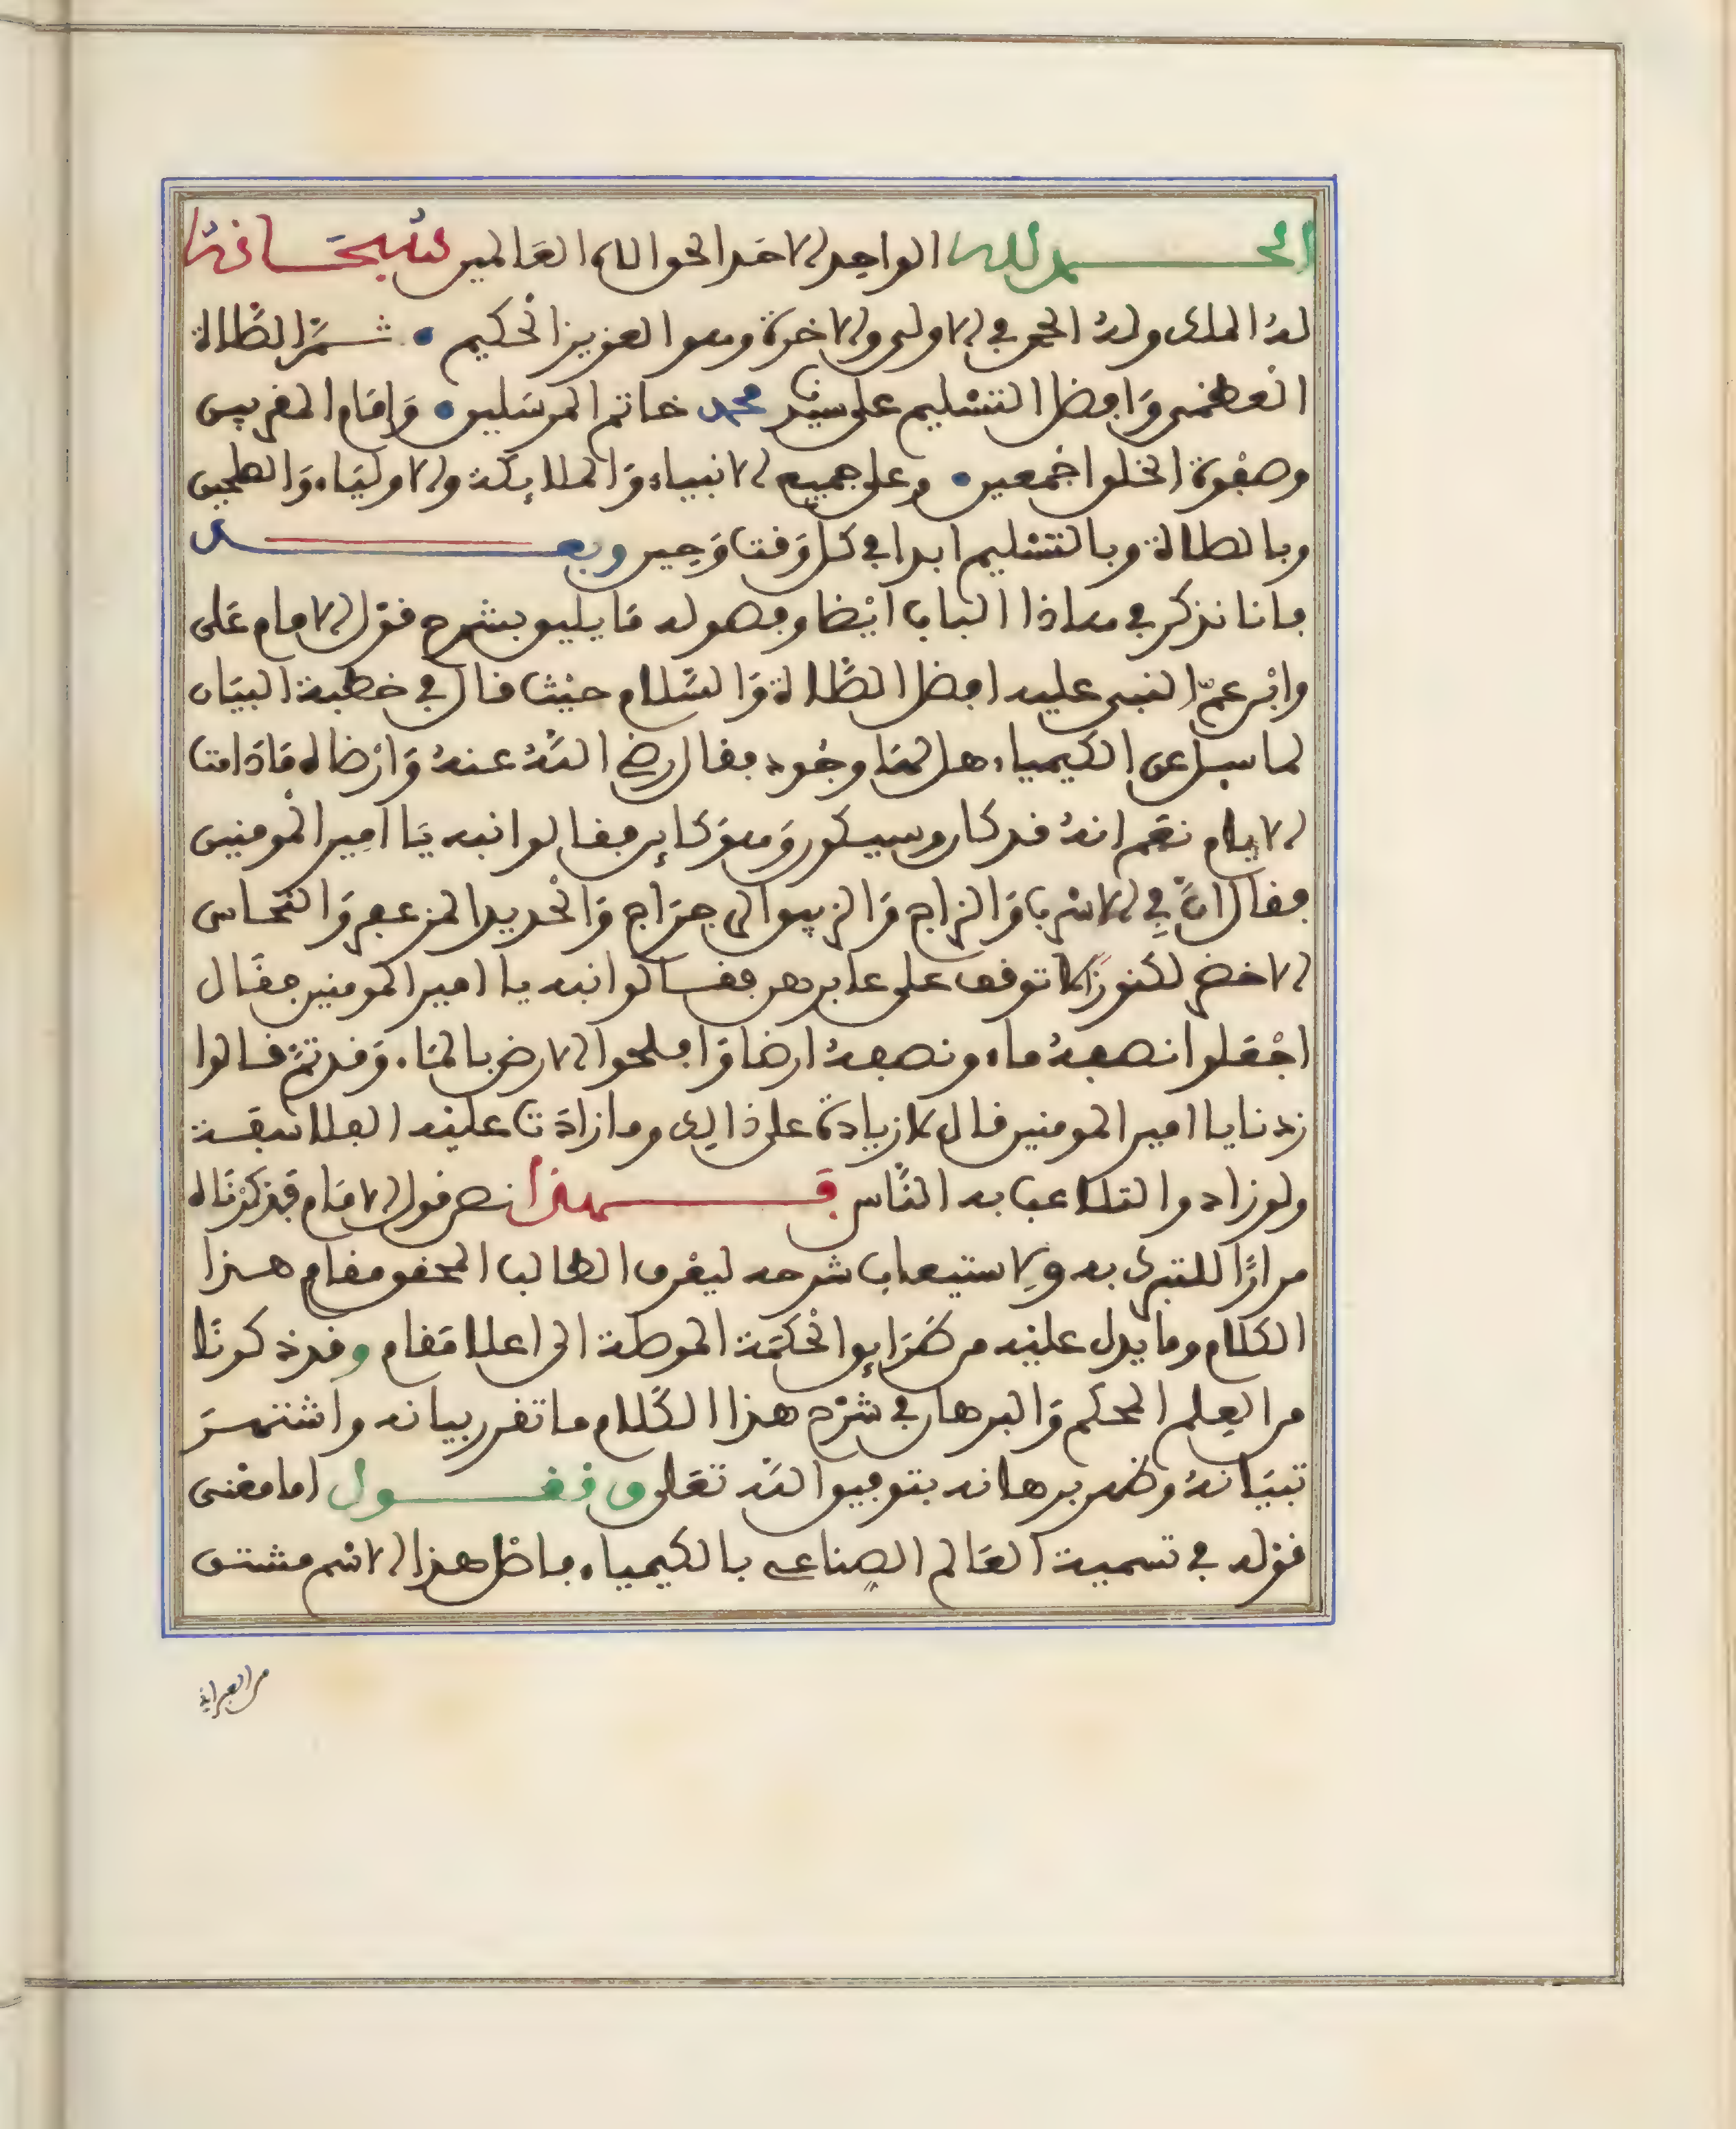 الحمد لله الواحد الاحد الحق الاه العالمين سبحانه
له الملك وله الحمد في الاولى والاخرة وهو العزيز الحكيم • ثم الصلاة
العظمى وافضل التسليم على سيدنا محمد خاتم المرسلين • وامام المقربين
وصفوة الخلق اجمعين • وعلى جميع الانبياء والملايكة والاولياء والصالحين
وبالصلاة وبالتسليم ابدا في كل وقت وحين وبعد
فانا نذكر في هاذا الباب ايضا وفصوله ما يليق بشرح قول الامام على
وابن عم النبى عليه افضل الصلاة والسلام حيث قال في خطبة البيان
لما سيل عن الكيمياء هل لها وجود فقال رضي الله عنه وارضاه ما دامت
الايام نعم انه قد كان وسيكون وهو كاين فقالوا نبه يا امير المومنين
فقال ان في الاسرب والزاج والزيبق الرجراج والحديد المزعفر والنحاس
الاخضر لكنوزا لا توقف على عابرهن فقالوا نبه يا امير المومنين فقال
اجعلوا نصفه ماء ونصفه ارضا وافلحوا الارض بالماء وقد تم قالوا
زدنا يا امير المومنين قال لا زيادة على ذالك وما زادت عليه الفلاسفة
ولو زادوا لتلاعب به الناس فهذا نص قول الامام قد ذكرناه
مرارا للتبرك به ولاستيعاب شرحه ليعرف الطالب المحقق مقام هذا
الكلام وما يدل عليه من طرايق الحكمة الموصلة الى اعلا مقام وقد ذكرنا
من العلم المحكم والبرهان في شرح هذا الكلام ما تقرر بيانه واشتهر
تبيانه وظهر برهانه بتوفيق الله تعلى فنقول اما معنى
قوله في تسمية العالم الصناعى بالكيمياء فاصل هذا الاسم مشتق